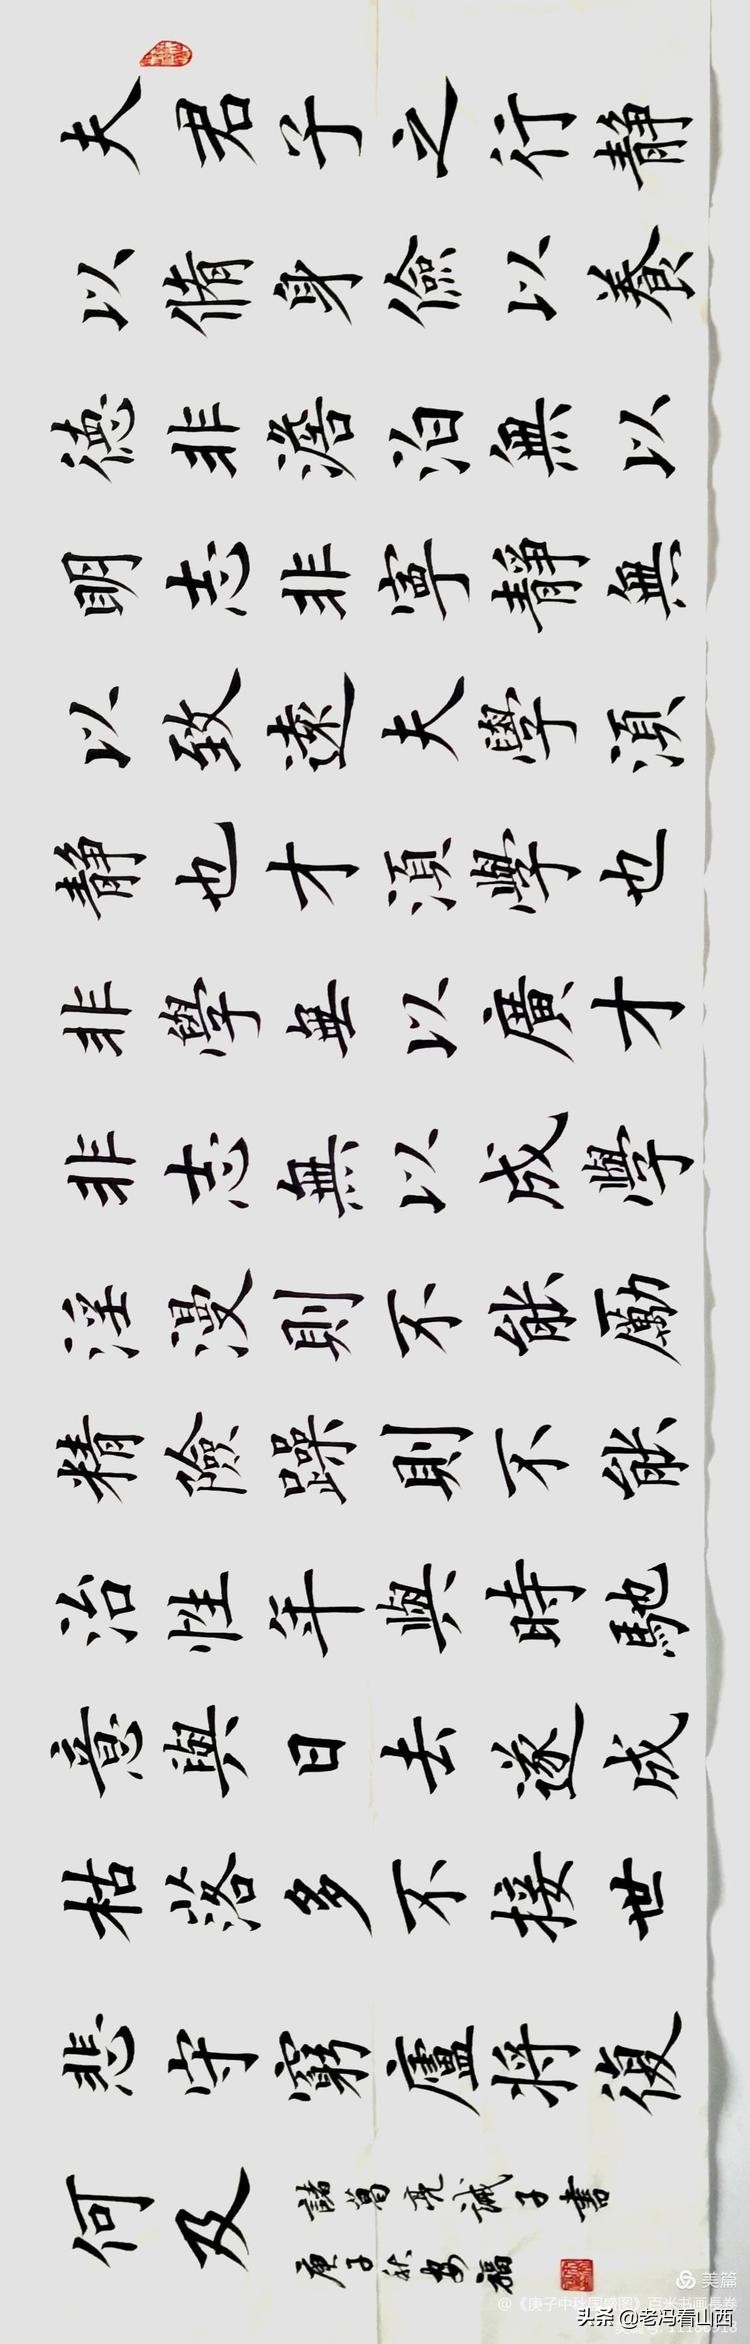 夫君子之行静
以脩身儉以養
德非澹泊無以
明志非寧靜無
以致遠夫學須
静也才須學也
非學無以廣才
非志無以成學
淫漫則不能勵
精險躁則不能
治性年與時馳
意與日去遂成
枯落多不接世
悲守窮廬將復
何及
諸葛亮誡子書
庚子秋安福
美篇
@《庚子中秋国盛图》百米书画長卷
头条 @老冯看山西